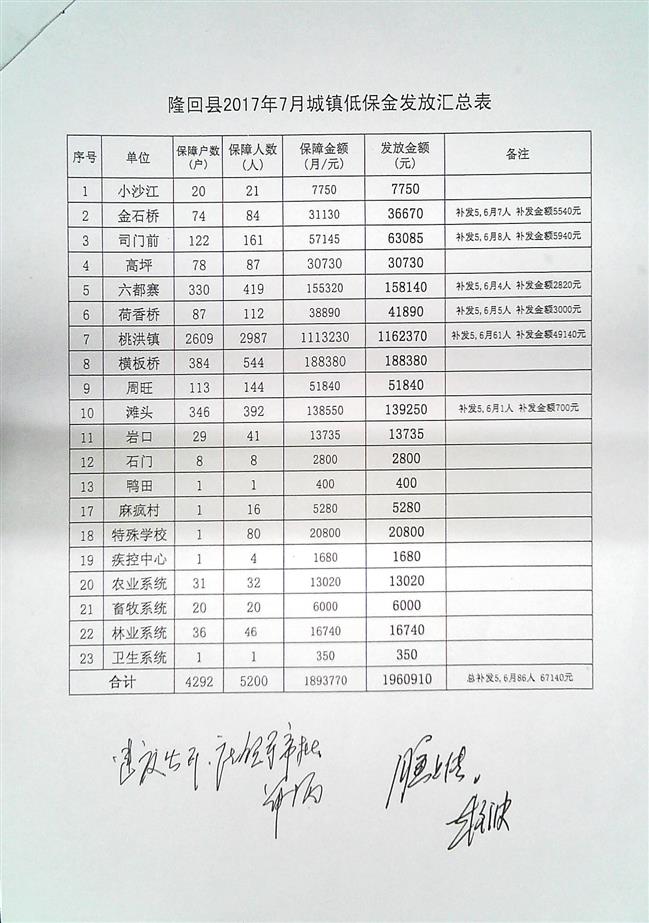 隆回县2017年7月城镇低保金发放汇总表
序号 单位 保障户数(户) 保障人数(人) 保障金额(月/元) 发放金额(元) 备注
1 小沙江 20 21 7750 7750
2 金石桥 74 84 31130 36670 补发5,6月7人 补发金额5540元
3 司门前 122 161 57145 63085 补发5,6月8人 补发金额5940元
4 高坪 78 87 30730 30730
5 六都寨 330 419 155320 158140 补发5,6月4人 补发金额2820元
6 荷香桥 87 112 38890 41890 补发5,6月5人 补发金额3000元
7 桃洪镇 2609 2987 1113230 1162370 补发5,6月61人 补发金额49140元
8 横板桥 384 544 188380 188380
9 周旺 113 144 51840 51840
10 滩头 346 392 138550 139250 补发5,6月1人 补发金额700元
11 岩口 29 41 13735 13735
12 石门 8 8 2800 2800
13 鸭田 1 1 400 400
17 麻疯村 1 16 5280 5280
18 特殊学校 1 80 20800 20800
19 疾控中心 1 4 1680 1680
20 农业系统 31 32 13020 13020
21 畜牧系统 20 20 6000 6000
22 林业系统 36 46 16740 16740
23 卫生系统 1 1 350 350
合计 4292 5200 1893770 1960910 总补发5,6月86人 67140元